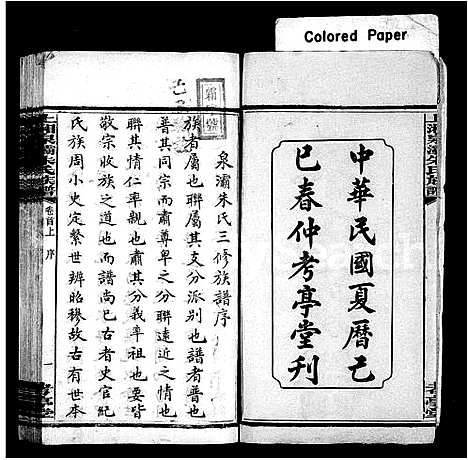 Colored Paper
中華民國夏曆己
巳春仲考亭堂刊
泉灞朱氏三修族譜序
族者屬也聯屬其支分派別也譜者普也
聯其同宗而肅尊卑之分聯遠近之情也
聯其情仁率親也肅其分義率祖也要皆
敬宗收族之道也而譜尚已古者史官紀
氏族周小史定繫世辨昭穆故古有世本
上湘泉灞朱氏族譜
卷首上
序
一
考亭堂